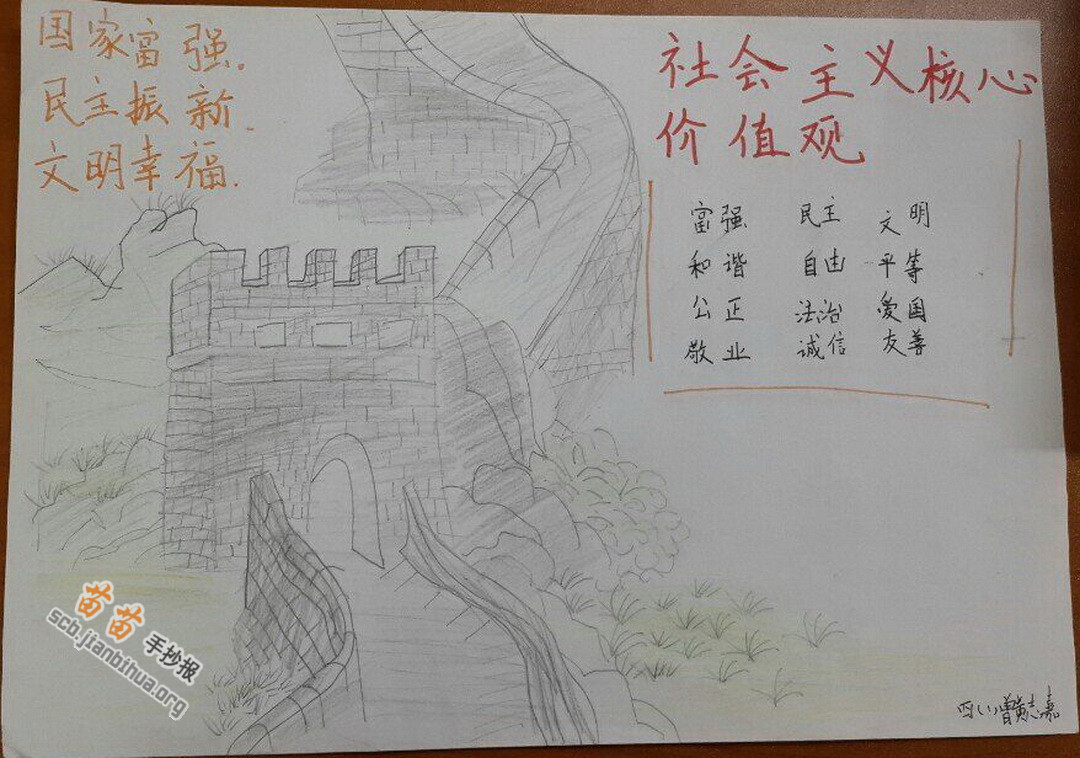 国家富强.
民主振新.
文明幸福.
社会主义核心
价值观
富强 民主 文明
和谐 自由 平等
公正 法治 爱国
敬业 诚信 友善
苗苗手抄报
scb.jianbihua.org
四(1)曾黄志嘉